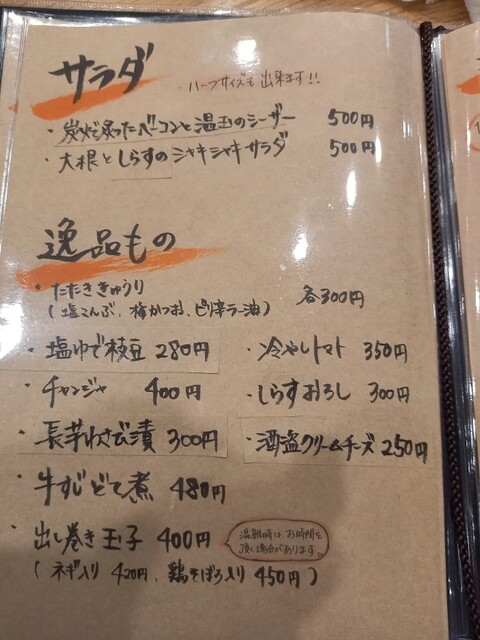 サラダ
ハーフサイズも出来ます!!
・炭火で炙ったベーコンと温玉のシーザー 500円
・大根としらすのシャキシャキサラダ 500円
逸品もの
・たたききゅうり 各300円
(塩こんぶ、梅かつお、ピリ辛ラー油)
・塩ゆで枝豆 280円
・冷やしトマト 350円
・チャンジャ 400円
・しらすおろし 300円
・長芋わさび漬 300円
・酒盗クリームチーズ 250円
・牛すじどて煮 480円
・出し巻き玉子 400円
混雑時は、お時間を
頂く場合があります。
(ネギ入り 420円、鶏そぼろ入り 450円)